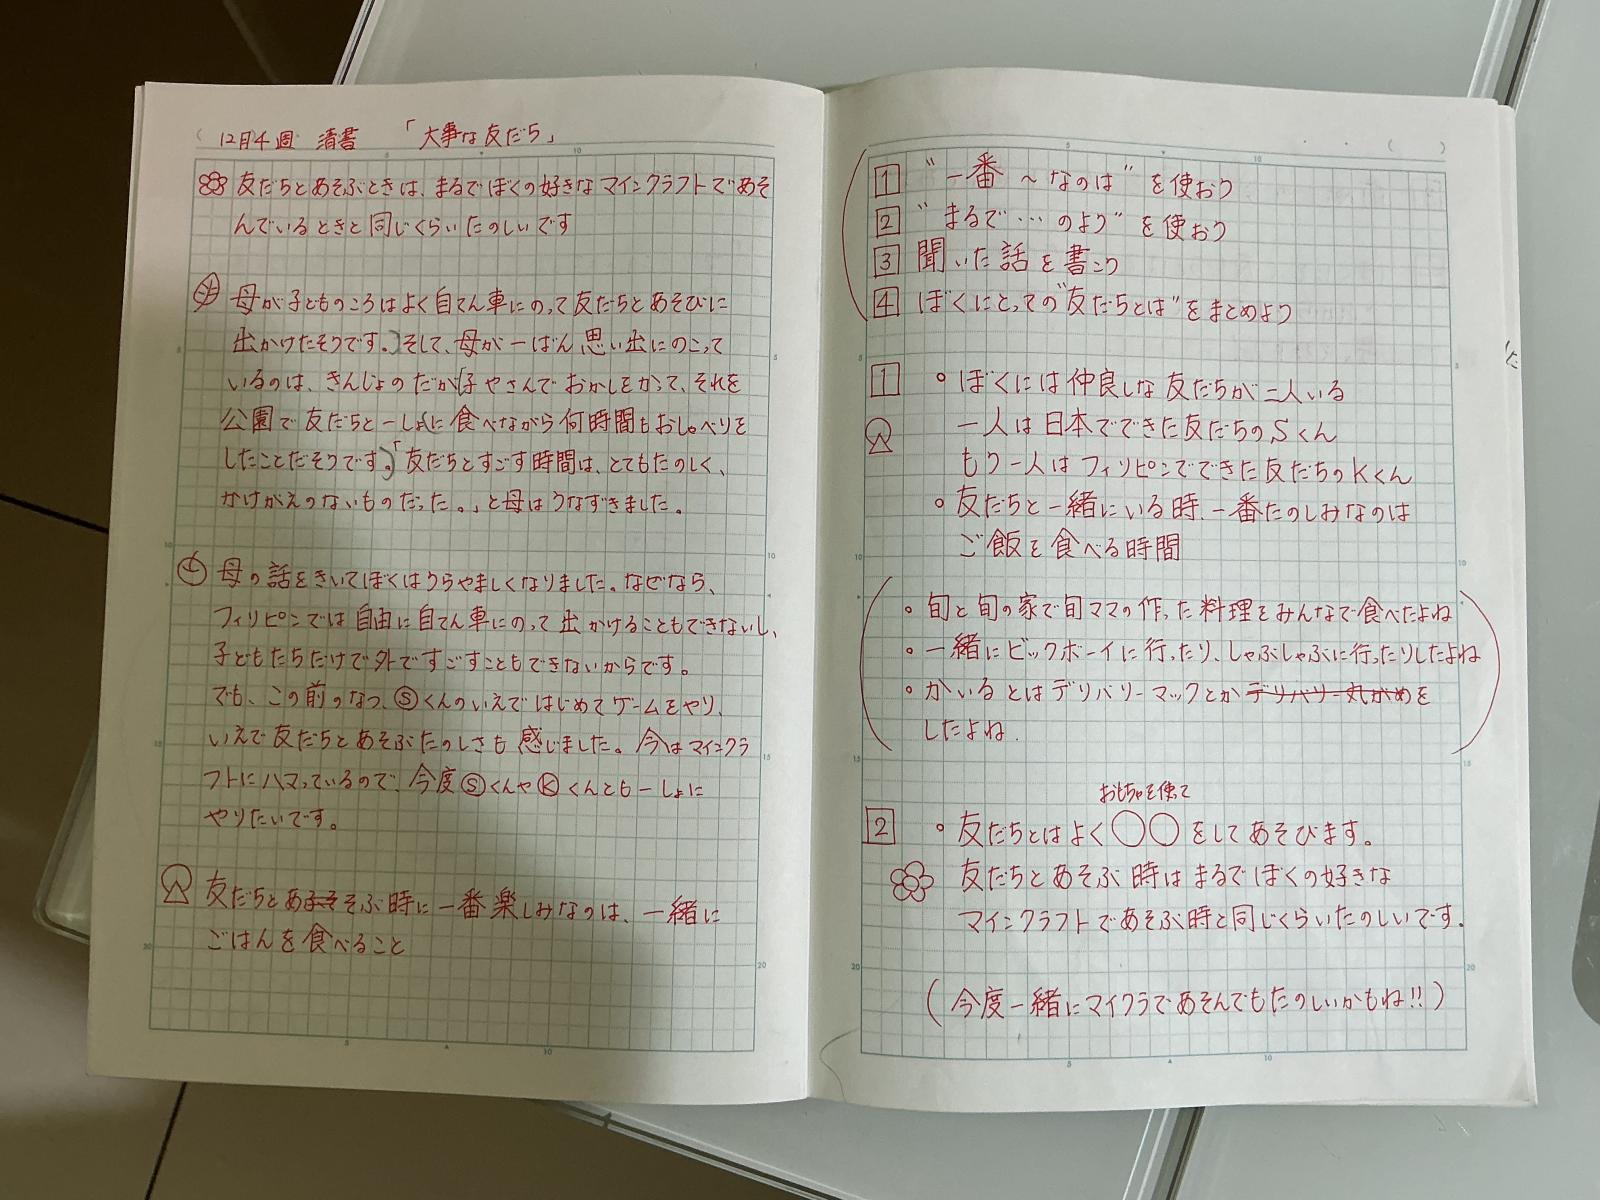 12月4週 清書 「大事な友だち」
友だちとあそぶときは、まるでぼくの好きなマインクラフトであそ
んでいるときと同じくらいたのしいです
母が子どものころはよく自てん車にのって友だちとあそびに
出かけたそうです。そして、母が一ばん思い出にのこって
いるのは、きんじょのだがし子やさんでおかしをかって、それを
公園で友だちと一しょに食べながら何時間もおしゃべりを
したことだそうです。「友だちとすごす時間は、とてもたのしく、
かけがえのないものだった。」と母はうなずきました。
母の話をきいてぼくはうらやましくなりました。なぜなら、
フィリピンでは自由に自てん車にのって出かけることもできないし、
子どもたちだけで外ですごすこともできないからです。
でも、この前のなつ、Ⓢくんのいえではじめてゲームをやり、
いえで友だちとあそぶたのしさも感じました。今はマインクラ
フトにハマっているので、今度ⓈくんやⓀくんとも一しょに
やりたいです。
友だちとあそぶ時に一番楽しみなのは、一緒に
ごはんを食べること
( )
1 "一番 〜なのは" を使おう
2 "まるで…のよう" を使おう
3 聞いた話を書こう
4 ぼくにとっての"友だちとは"をまとめよう
1 ・ぼくには仲良しな友だちが二人いる
一人は日本でできた友だちのSくん
もう一人はフィリピンでできた友だちのKくん
・友だちと一緒にいる時、一番たのしみなのは
ご飯を食べる時間
・旬と旬の家で旬ママの作った料理をみんなで食べたよね
・一緒にビックボーイに行ったり、しゃぶしゃぶに行ったりしたよね
・かいるとはデリバリーマックとかデリバリー丸がめを
したよね.
おもちゃを使って
2 ・友だちとはよく〇〇をしてあそびます。
友だちとあそぶ時はまるでぼくの好きな
マインクラフトであそぶ時と同じくらいたのしいです.
(今度一緒にマイクラであそんでもたのしいかもね!!)